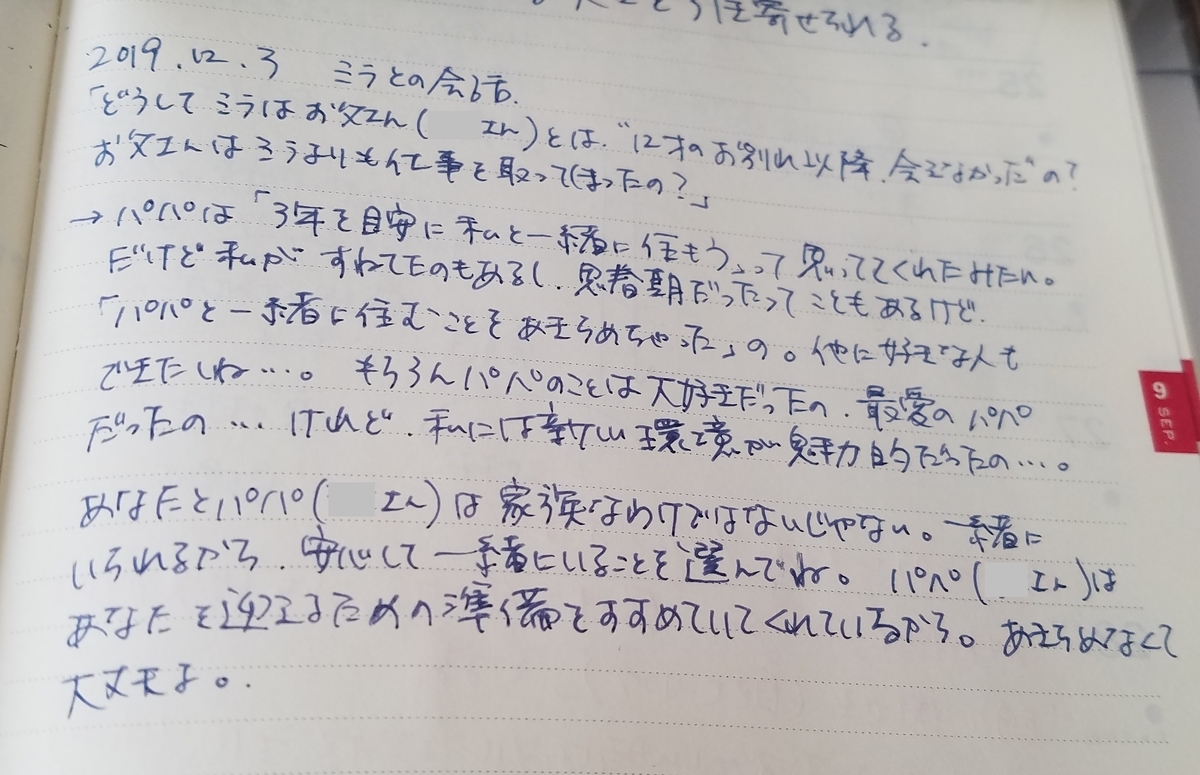 き寄せられる.
2019.12.3 ミラとの会話.
「どうしてミラはお父さん( さん)とは、"12才のお別れ以降、会えなかった"の?
お父さんはミラよりも仕事を取ってしまったの?」
→ パパは「3年を目安に私と一緒に住もう」って思っててくれたみたい。
だけど私が すねてたのもあるし、思春期だったってこともあるけど.
「パパと一緒に住むことをあきらめちゃった」の。他に好きな人も
できたしね…。 もちろんパパのことは大好きだったの、最愛のパパ
だったの… けれど、私には新しい環境が魅力的だったの…。
あなたとパパ( さん)は家族なわけではないじゃない。一緒に
いられるから、安心して一緒にいることを選んでね。 パパ( さん)は
あなたを迎えるための準備をすすめていてくれているから。 あきらめなくて
大丈夫よ。.
9
SEP.